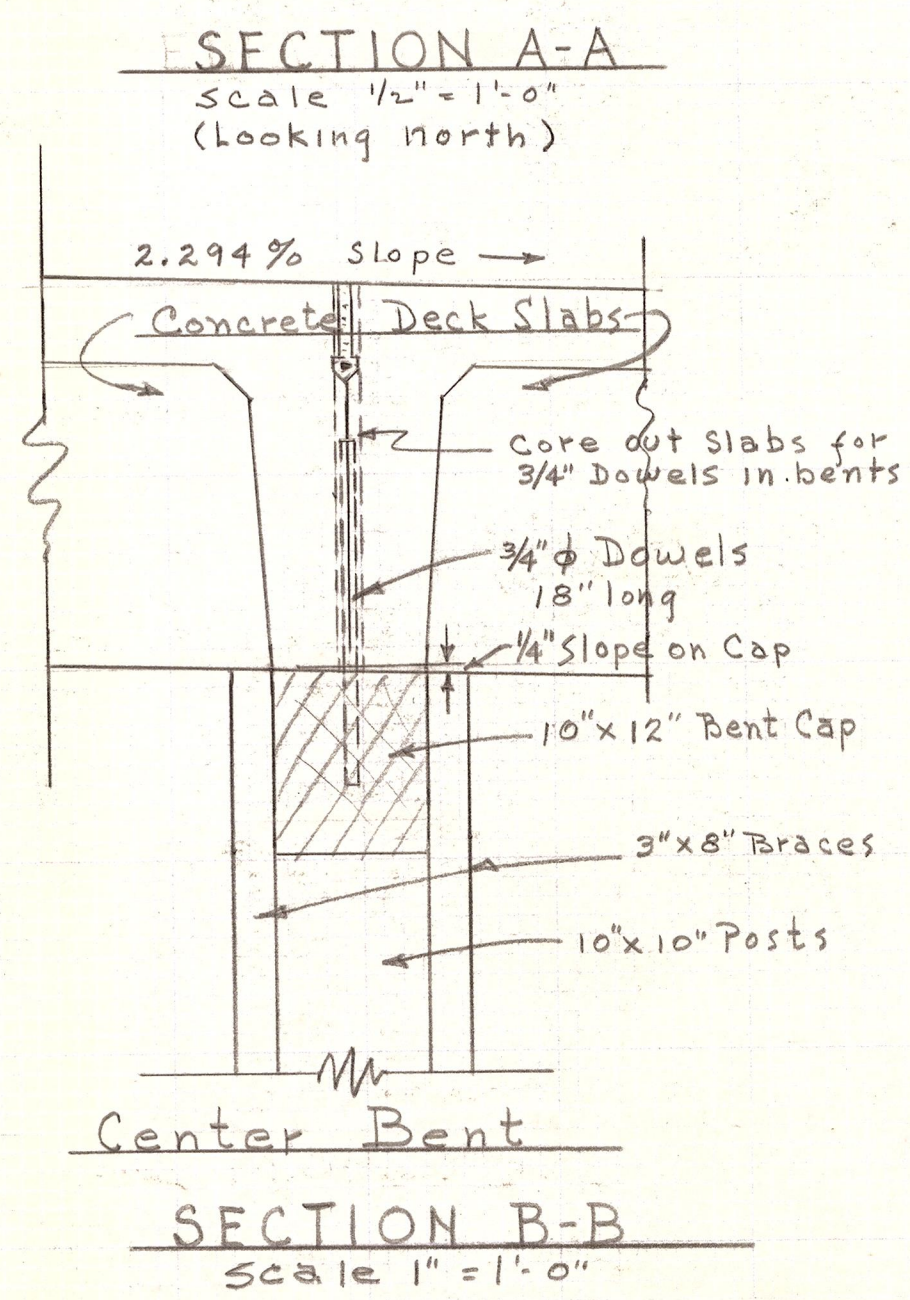 SECTION A-A
Scale 1/2" = 1'-0"
(Looking north)
2.294% Slope
Concrete Deck Slabs
Core out Slabs for
3/4" Dowels in bents
3/4" ϕ Dowels
18" long
1/4" Slope on Cap
10" x 12" Bent Cap
3" x 8" Braces
10" x 10" Posts
Center Bent
SECTION B-B
Scale 1" = 1'-0"